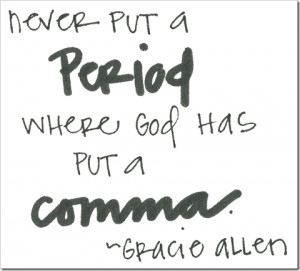 never put a
Period
where God has
put a
comma.
~Gracie Allen